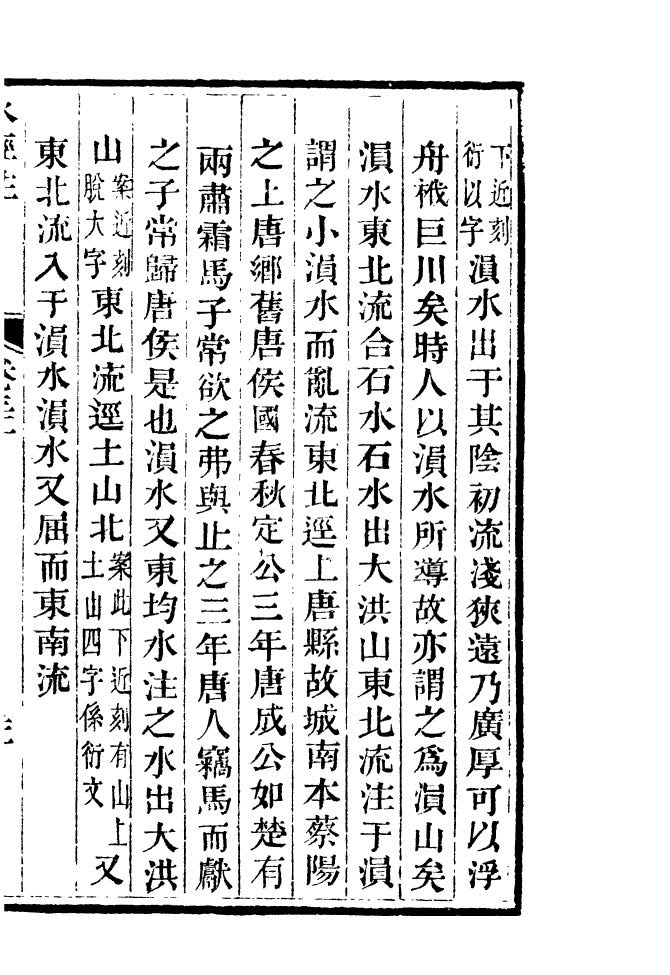 下近刻衍以字溳水出于其陰初流淺狹遠乃廣厚可以浮
舟栰巨川矣時人以溳水所導故亦謂之為溳山矣
溳水東北流合石水石水出大洪山東北流注于溳
謂之小溳水而亂流東北逕上唐縣故城南本蔡陽
之上唐鄉舊唐侯國春秋定公三年唐成公如楚有
兩肅霜馬子常欲之弗與止之三年唐人竊馬而獻
之子常歸唐侯是也溳水又東均水注之水出大洪
山案近刻脫大字東北流逕土山北案此下近刻有山上土山四字係衍文又
東北流入于溳水溳水又屈而東南流
水經注